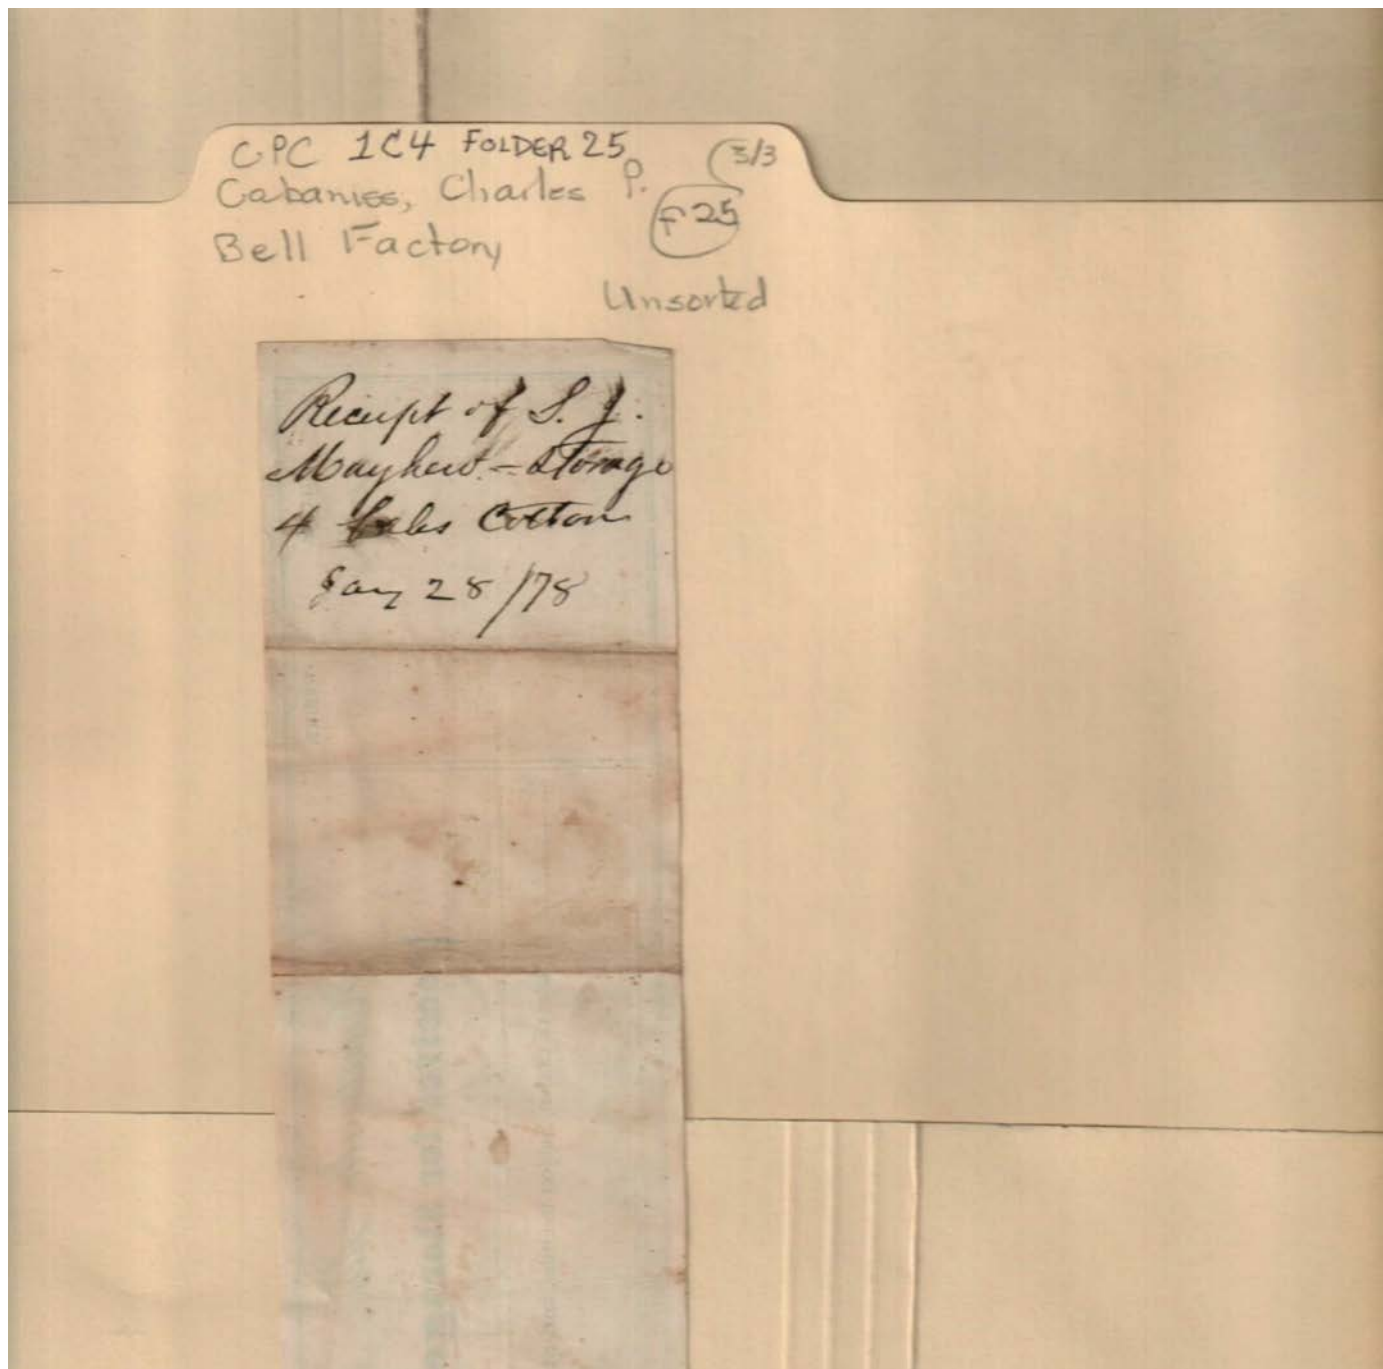 CPC 1C4 FOLDER 25 3/3
Cabaniss, Charles P.
F 25
Bell Factory
Unsorted
Receipt of S. J.
Mayhew - Storage
4 bales Cotton
Jany 28/78